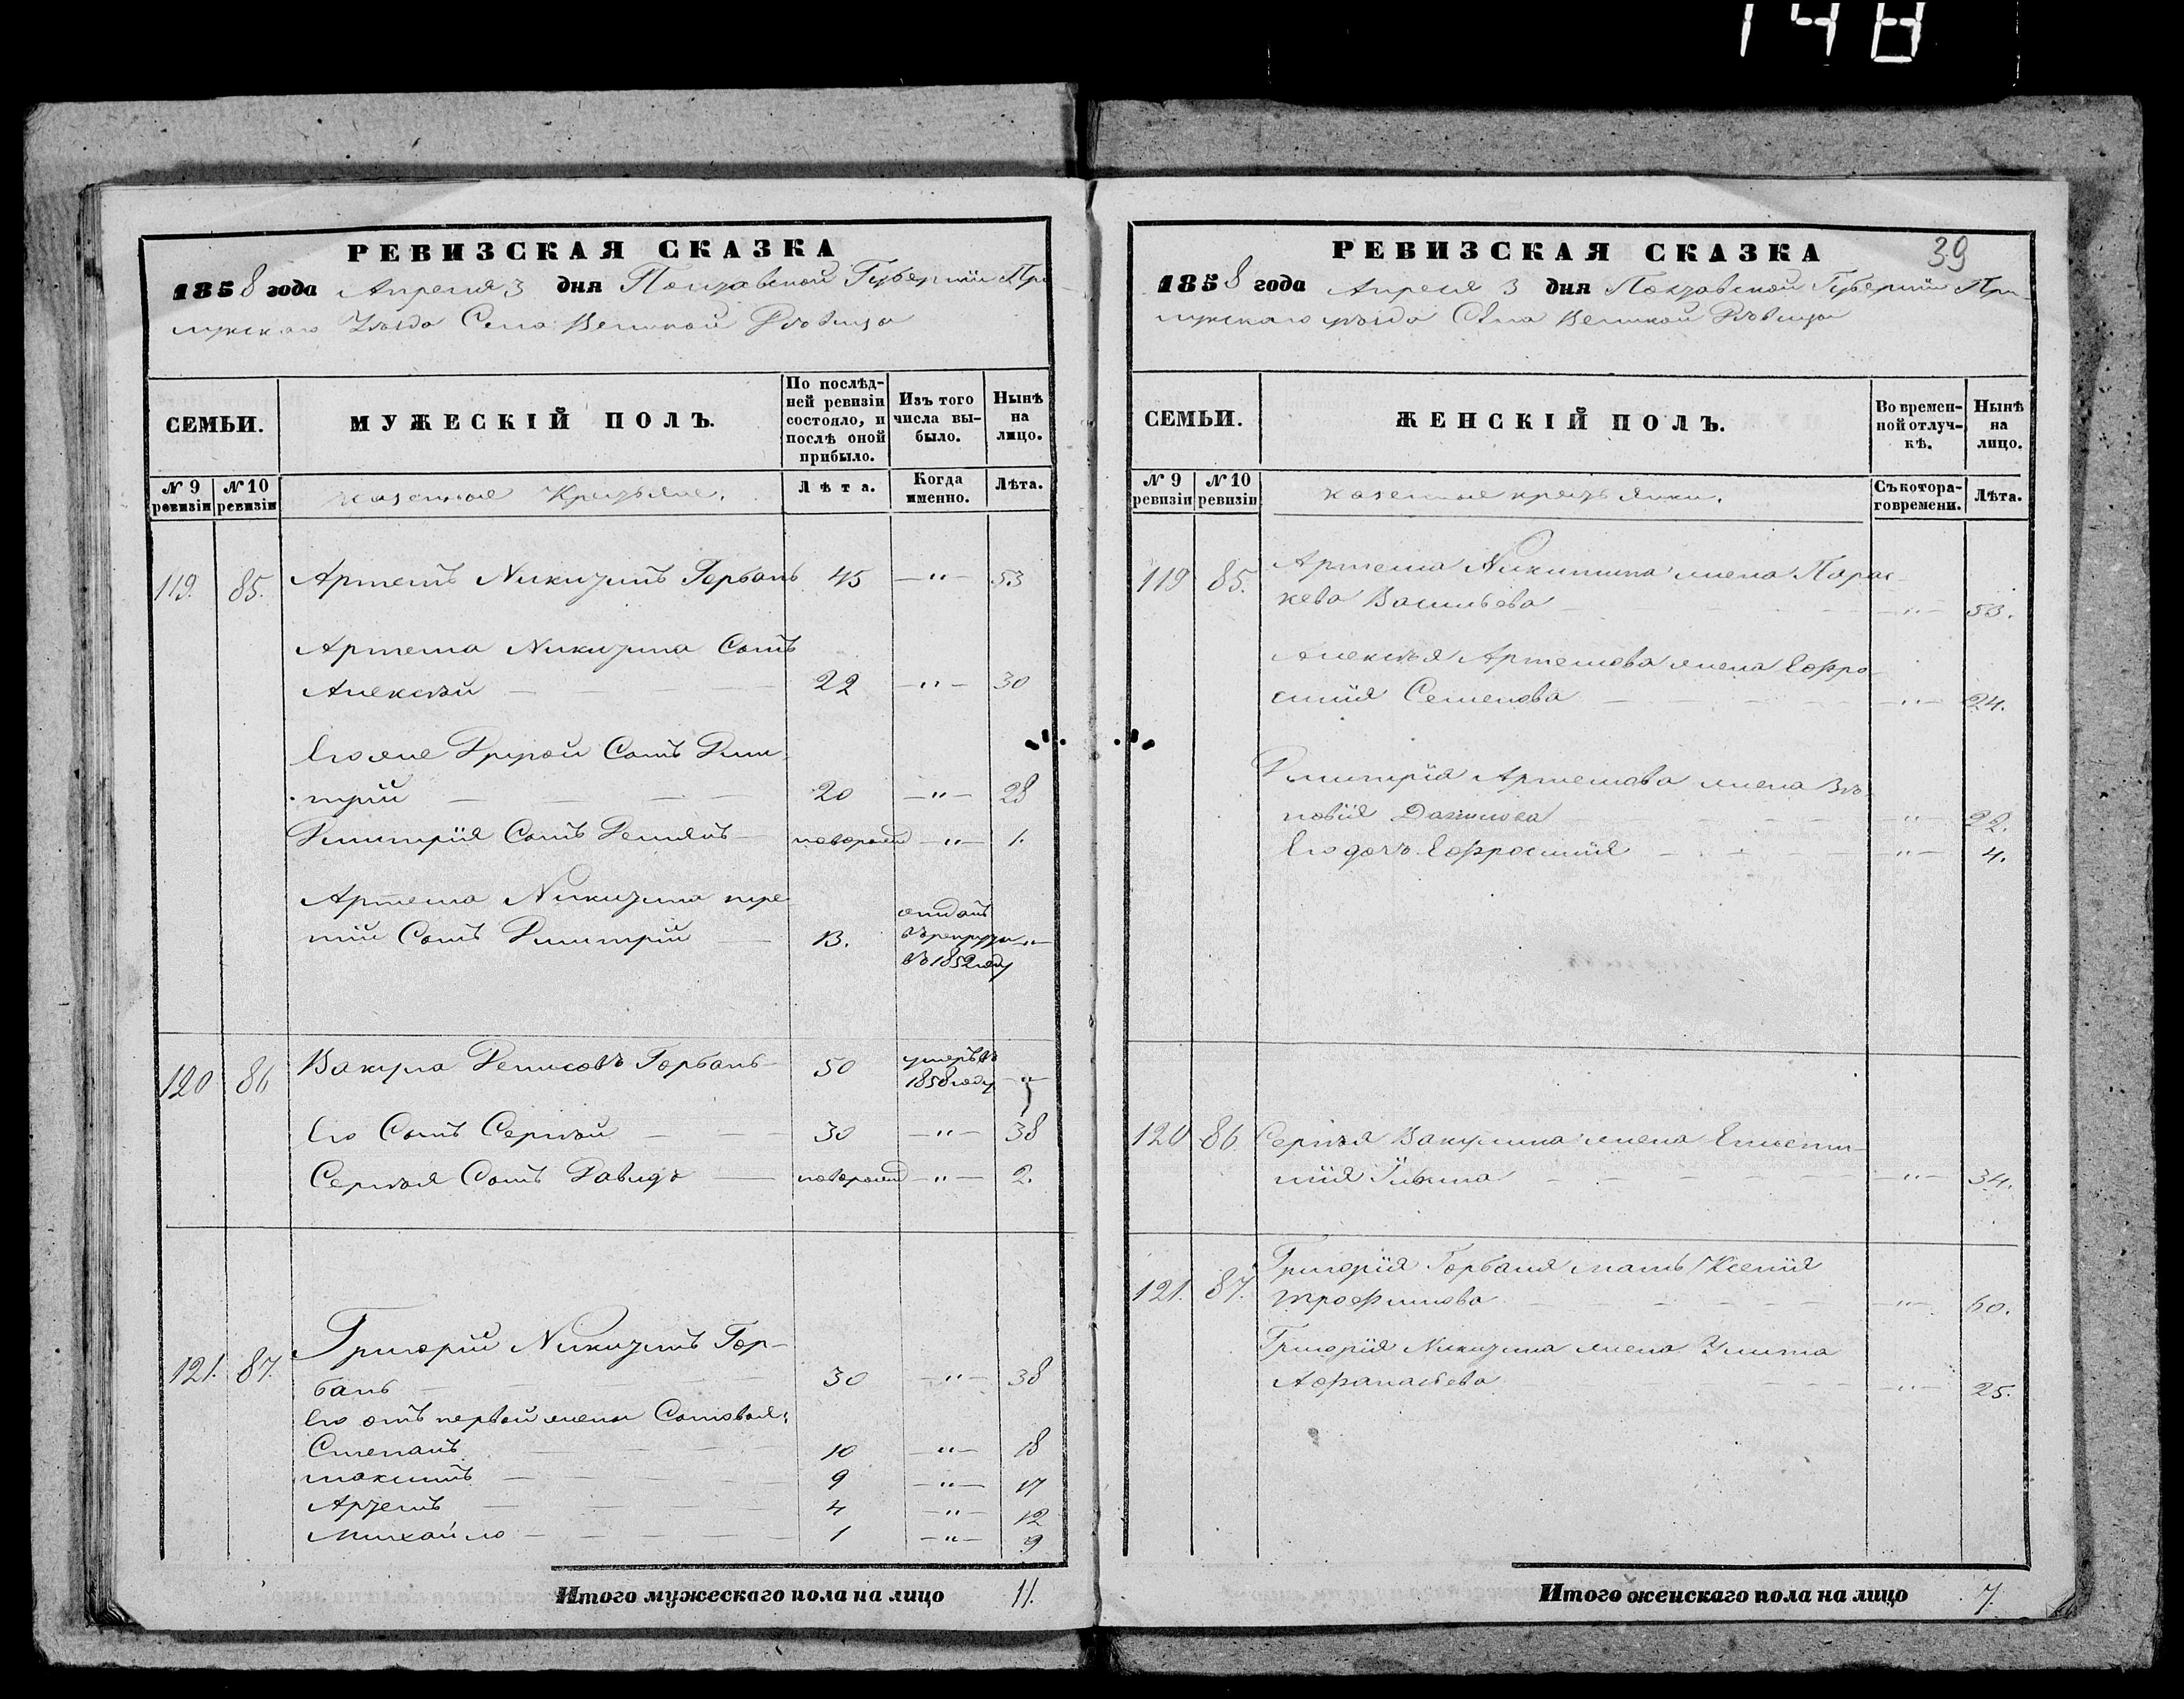 148
РЕВИЗСКАЯ СКАЗКА
1858 года Апреля 3 дня Полтавской Губерніи При
лукскаго Уѣзда Села Великой Дѣвицы
СЕМЬИ.
МУЖЕСКІЙ ПОЛЪ.
По послѣд-
ней ревизіи
состояло, и
послѣ оной
прибыло.
Изъ того
числа вы-
было.
Нынѣ
на
лицо.
№ 9
ревизіи
№ 10
ревизіи
казенные Крестьяне.
Лѣта.
Когда
именно.
Лѣта.
119. 85. Артемъ Никитинъ Горбань 45 —"— 53
Артема Никитина Сынъ
Алексѣй — 22 —"— 30
Его же Другой Сынъ Дми-
трій — 20 —"— 28
Дмитрія Сынъ Демянъ — новорожд —"— 1.
Артема Никитина тре
тій Сынъ Дмитрій — 13. отданъ
въ рекруты —"—
въ 1852 году
120 86 Вакула Денисовъ Горбань 50 умеръ въ
1858 году —"—
Его Сынъ Сергѣй — 30 —"— 38
Сергѣя Сынъ Давидъ — новорожд —"— 2.
121. 87. Григорій Никитинъ Гор-
бань — 30 —"— 38
Его отъ первой жены Сыновья:
Степанъ — 10 —"— 18
Максимъ — 9 —"— 17
Артемъ — 4 —"— 12
Михайло — 1 —"— 9
Итого мужескаго пола на лицо 11.
39
РЕВИЗСКАЯ СКАЗКА
1858 года Апреля 3 дня Полтавской Губерніи При-
лукскаго уѣзда Села Великой Дѣвицы
СЕМЬИ.
ЖЕНСКІЙ ПОЛЪ.
Во времен-
ной отлуч-
кѣ.
Нынѣ
на
лицо.
№ 9
ревизіи
№ 10
ревизіи
казенные крестьянки.
Съ котора-
го времени.
Лѣта.
119 85. Артема Никитина жена Парас-
кева Васильева — —"— 53.
Алексѣя Артемова жена Ефро-
синія Семенова — —"— 24.
Дмитрія Артемова жена Зѣ-
новія Данилова — —"— 22.
Его дочь Ефросинія — —"— 4.
120 86. Сергѣя Вакулина жена Еписти-
мія Ильина — —"— 34.
121. 87. Григорія Горбаня мать Ксенія
Трофимова — —"— 60.
Григорія Никитина жена Улита
Афанасьева — —"— 25.
Итого женскаго пола на лицо 7.